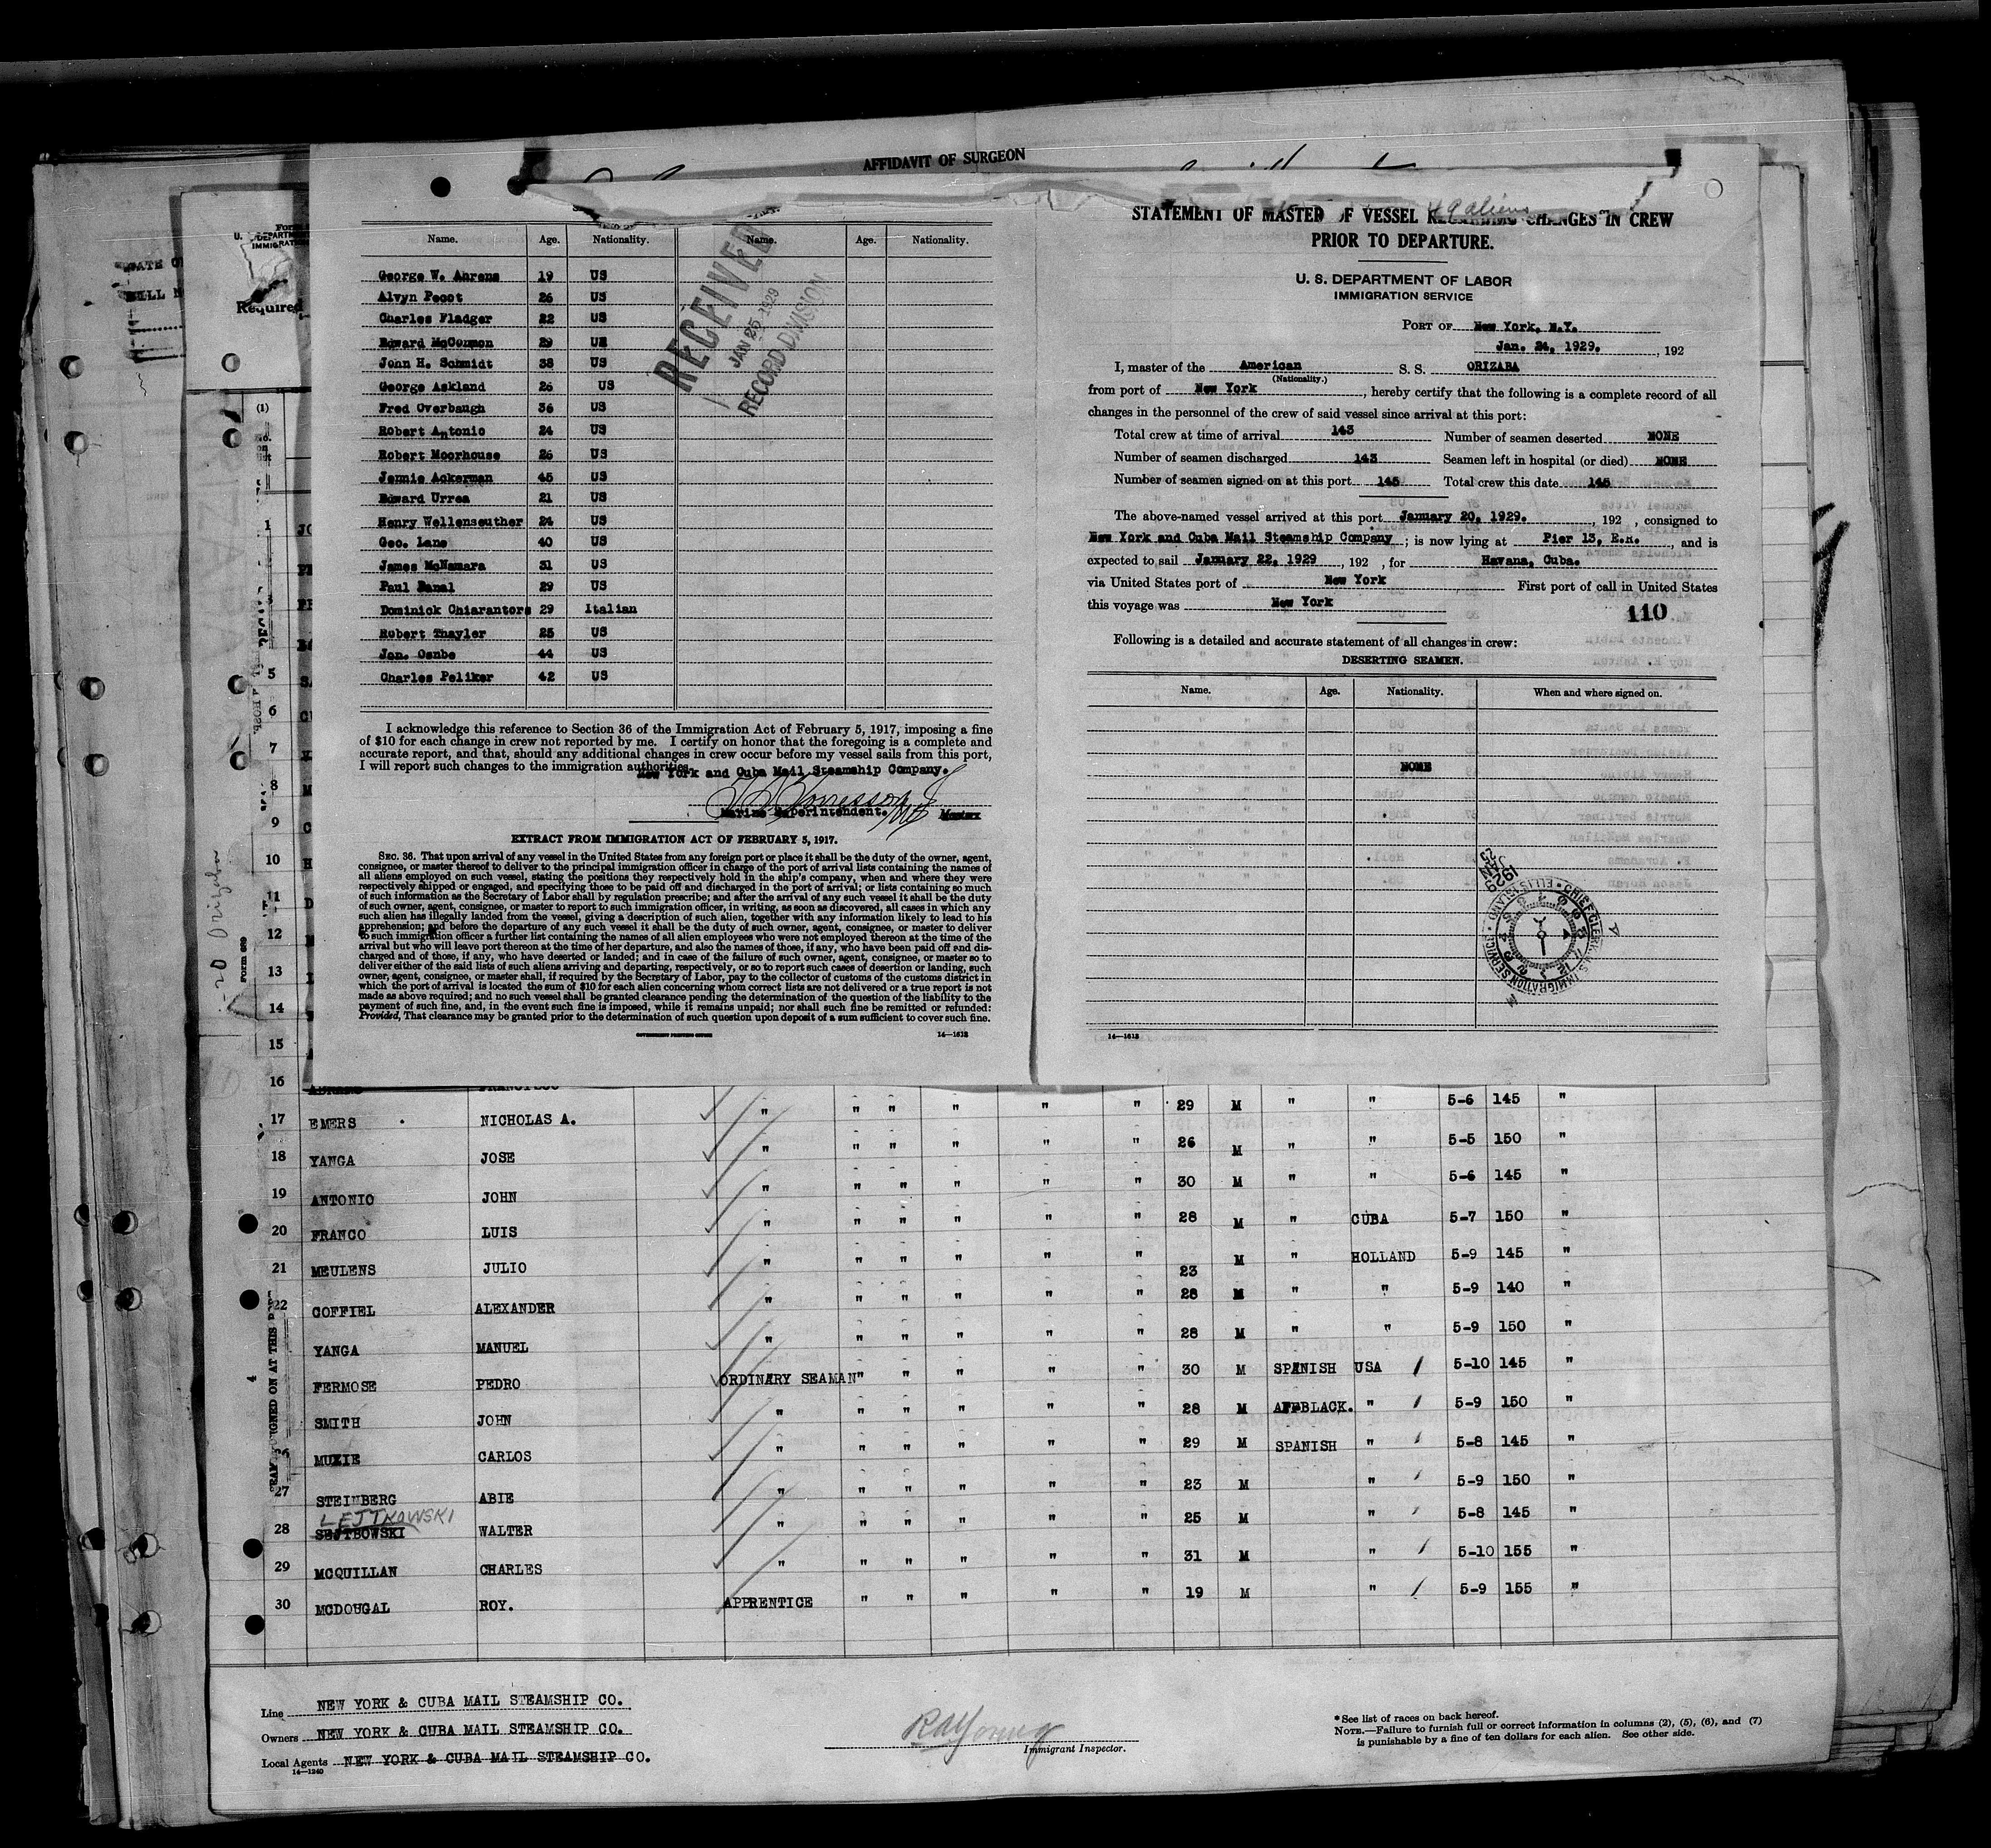 AFFIDAVIT OF SURGEON
Name. Age. Nationality. Name. Age. Nationality.
George W. Ahrens 19 US
Alvyn Pecot 26 US
Charles Fladger 22 US
Edward McCommon 29 US
John H. Schmidt 38 US
George Askland 26 US
Fred Overbaugh 36 US
Robert Antonio 24 US
Robert Moorhouse 26 US
Jennie Ackerman 45 US
Edward Urrea 21 US
Henry Wellenseuther 24 US
Geo. Lane 40 US
James McNamara 31 US
Paul Banal 29 US
Dominick Chiarantore 29 Italian
Robert Thayler 25 US
Jon. Osnbe 44 US
Charles Peliker 42 US
RECEIVED
JAN 25 1929
RECORD DIVISION
I acknowledge this reference to Section 36 of the Immigration Act of February 5, 1917, imposing a fine
of $10 for each change in crew not reported by me. I certify on honor that the foregoing is a complete and
accurate report, and that, should any additional changes in crew occur before my vessel sails from this port,
I will report such changes to the immigration authorities.
New York and Cuba Mail Steamship Company.
Marine Superintendent. Master
EXTRACT FROM IMMIGRATION ACT OF FEBRUARY 5, 1917.
SEC. 36. That upon arrival of any vessel in the United States from any foreign port or place it shall be the duty of the owner, agent,
consignee, or master thereof to deliver to the principal immigration officer in charge of the port of arrival lists containing the names of
all aliens employed on such vessel, stating the positions they respectively hold in the ship's company, when and where they were
respectively shipped or engaged, and specifying those to be paid off and discharged in the port of arrival; or lists containing so much
of such information as the Secretary of Labor shall by regulation prescribe; and after the arrival of any such vessel it shall be the duty
of such owner, agent, consignee, or master to report to such immigration officer, in writing, as soon as discovered, all cases in which any
such alien has illegally landed from the vessel, giving a description of such alien, together with any information likely to lead to his
apprehension; and before the departure of any such vessel it shall be the duty of such owner, agent, consignee, or master to deliver
to such immigration officer a further list containing the names of all alien employees who were not employed thereon at the time of the
arrival but who will leave port thereon at the time of her departure, and also the names of those, if any, who have been paid off and dis-
charged and of those, if any, who have deserted or landed; and in case of the failure of such owner, agent, consignee, or master so to
deliver either of the said lists of such aliens arriving and departing, respectively, or so to report such cases of desertion or landing, such
owner, agent, consignee, or master shall, if required by the Secretary of Labor, pay to the collector of customs of the customs district in
which the port of arrival is located the sum of $10 for each alien concerning whom correct lists are not delivered or a true report is not
made as above required; and no such vessel shall be granted clearance pending the determination of the question of the liability to the
payment of such fine, and, in the event such fine is imposed, while it remains unpaid; nor shall such fine be remitted or refunded:
Provided, That clearance may be granted prior to the determination of such question upon deposit of a sum sufficient to cover such fine.
GOVERNMENT PRINTING OFFICE 14—1613
49 aliens
STATEMENT OF MASTER OF VESSEL REGARDING CHANGES IN CREW
PRIOR TO DEPARTURE.
U. S. DEPARTMENT OF LABOR
IMMIGRATION SERVICE
PORT OF New York, N.Y.
Jan. 24, 1929. , 192
I, master of the American S. S. ORIZABA
(Nationality.)
from port of New York , hereby certify that the following is a complete record of all
changes in the personnel of the crew of said vessel since arrival at this port:
Total crew at time of arrival 143 Number of seamen deserted NONE
Number of seamen discharged 143 Seamen left in hospital (or died) NONE
Number of seamen signed on at this port 145 Total crew this date 145
The above-named vessel arrived at this port January 20, 1929. , 192 , consigned to
New York and Cuba Mail Steamship Company ; is now lying at Pier 13, E.R. , and is
expected to sail January 22, 1929 , 192 , for Havana, Cuba.
via United States port of New York First port of call in United States
this voyage was New York
110
Following is a detailed and accurate statement of all changes in crew:
DESERTING SEAMEN.
Name. Age. Nationality. When and where signed on.
NONE
CHIEF CLERK IMMIGRATION SERVICE ELLIS ISLAND
14—1613
Required
(1)
Form 680
-20 Orizaba
SEAMEN SIGNED ON AT THIS PORT
1
5
6
7
8
9
10
11
12
13
14
15
16
17 EMERS NICHOLAS A. " " " " " " 29 M " " 5-6 145 "
18 YANGA JOSE " " " " " " 26 M " " 5-5 150 "
19 ANTONIO JOHN " " " " " " 30 M " " 5-6 145 "
20 FRANCO LUIS " " " " " " 28 M " CUBA 5-7 150 "
21 MEULENS JULIO " " " " " " 23 M " HOLLAND 5-9 145 "
22 COFFIEL ALEXANDER " " " " " " 28 M " " 5-9 140 "
YANGA MANUEL " " " " " " 28 M " " 5-9 150 "
FERMOSE PEDRO ORDINARY SEAMAN " " " " " 30 M SPANISH USA 5-10 145 "
SMITH JOHN " " " " " " 28 M AFRBLACK. " 5-9 150 "
26 MUXIE CARLOS " " " " " " 29 M SPANISH " 5-8 145 "
27 STEINBERG ABIE " " " " " " 23 M " 5-9 150 "
LEJTKOWSKI
28 SEJTBOWSKI WALTER " " " " " " 25 M " 5-8 145 "
29 MCQUILLAN CHARLES " " " " " " 31 M " 5-10 155 "
30 MCDOUGAL ROY. APPRENTICE " " " " " 19 M " 5-9 155 "
Line NEW YORK & CUBA MAIL STEAMSHIP CO.
Owners NEW YORK & CUBA MAIL STEAMSHIP CO.
Local Agents NEW YORK & CUBA MAIL STEAMSHIP CO.
14—1240
RAYoung
Immigrant Inspector.
* See list of races on back hereof.
NOTE.—Failure to furnish full or correct information in columns (2), (5), (6), and (7)
is punishable by a fine of ten dollars for each alien. See other side.